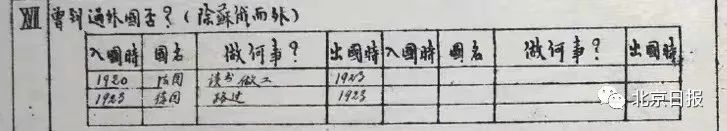 XII 曾到過外國否？（除蘇俄而外）
入國時 國名 做何事？ 出國時 入國時 國名 做何事？ 出國時
1920 法国 读书做工 1923
1923 德国 路过 1923
北京日报